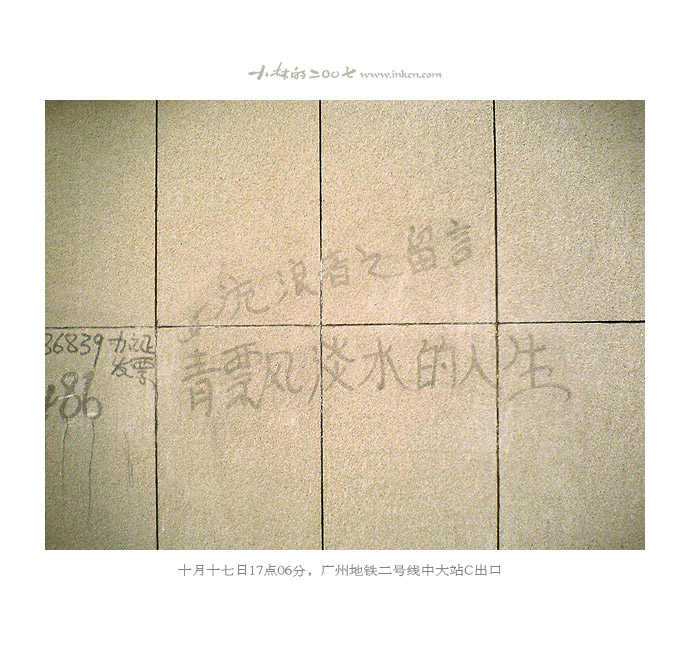 小林的二〇〇七 www.inkcn.com
流浪者之留言
青飘风淡水的人生
36839 办证
发票
486
十月十七日17点06分，广州地铁二号线中大站C出口